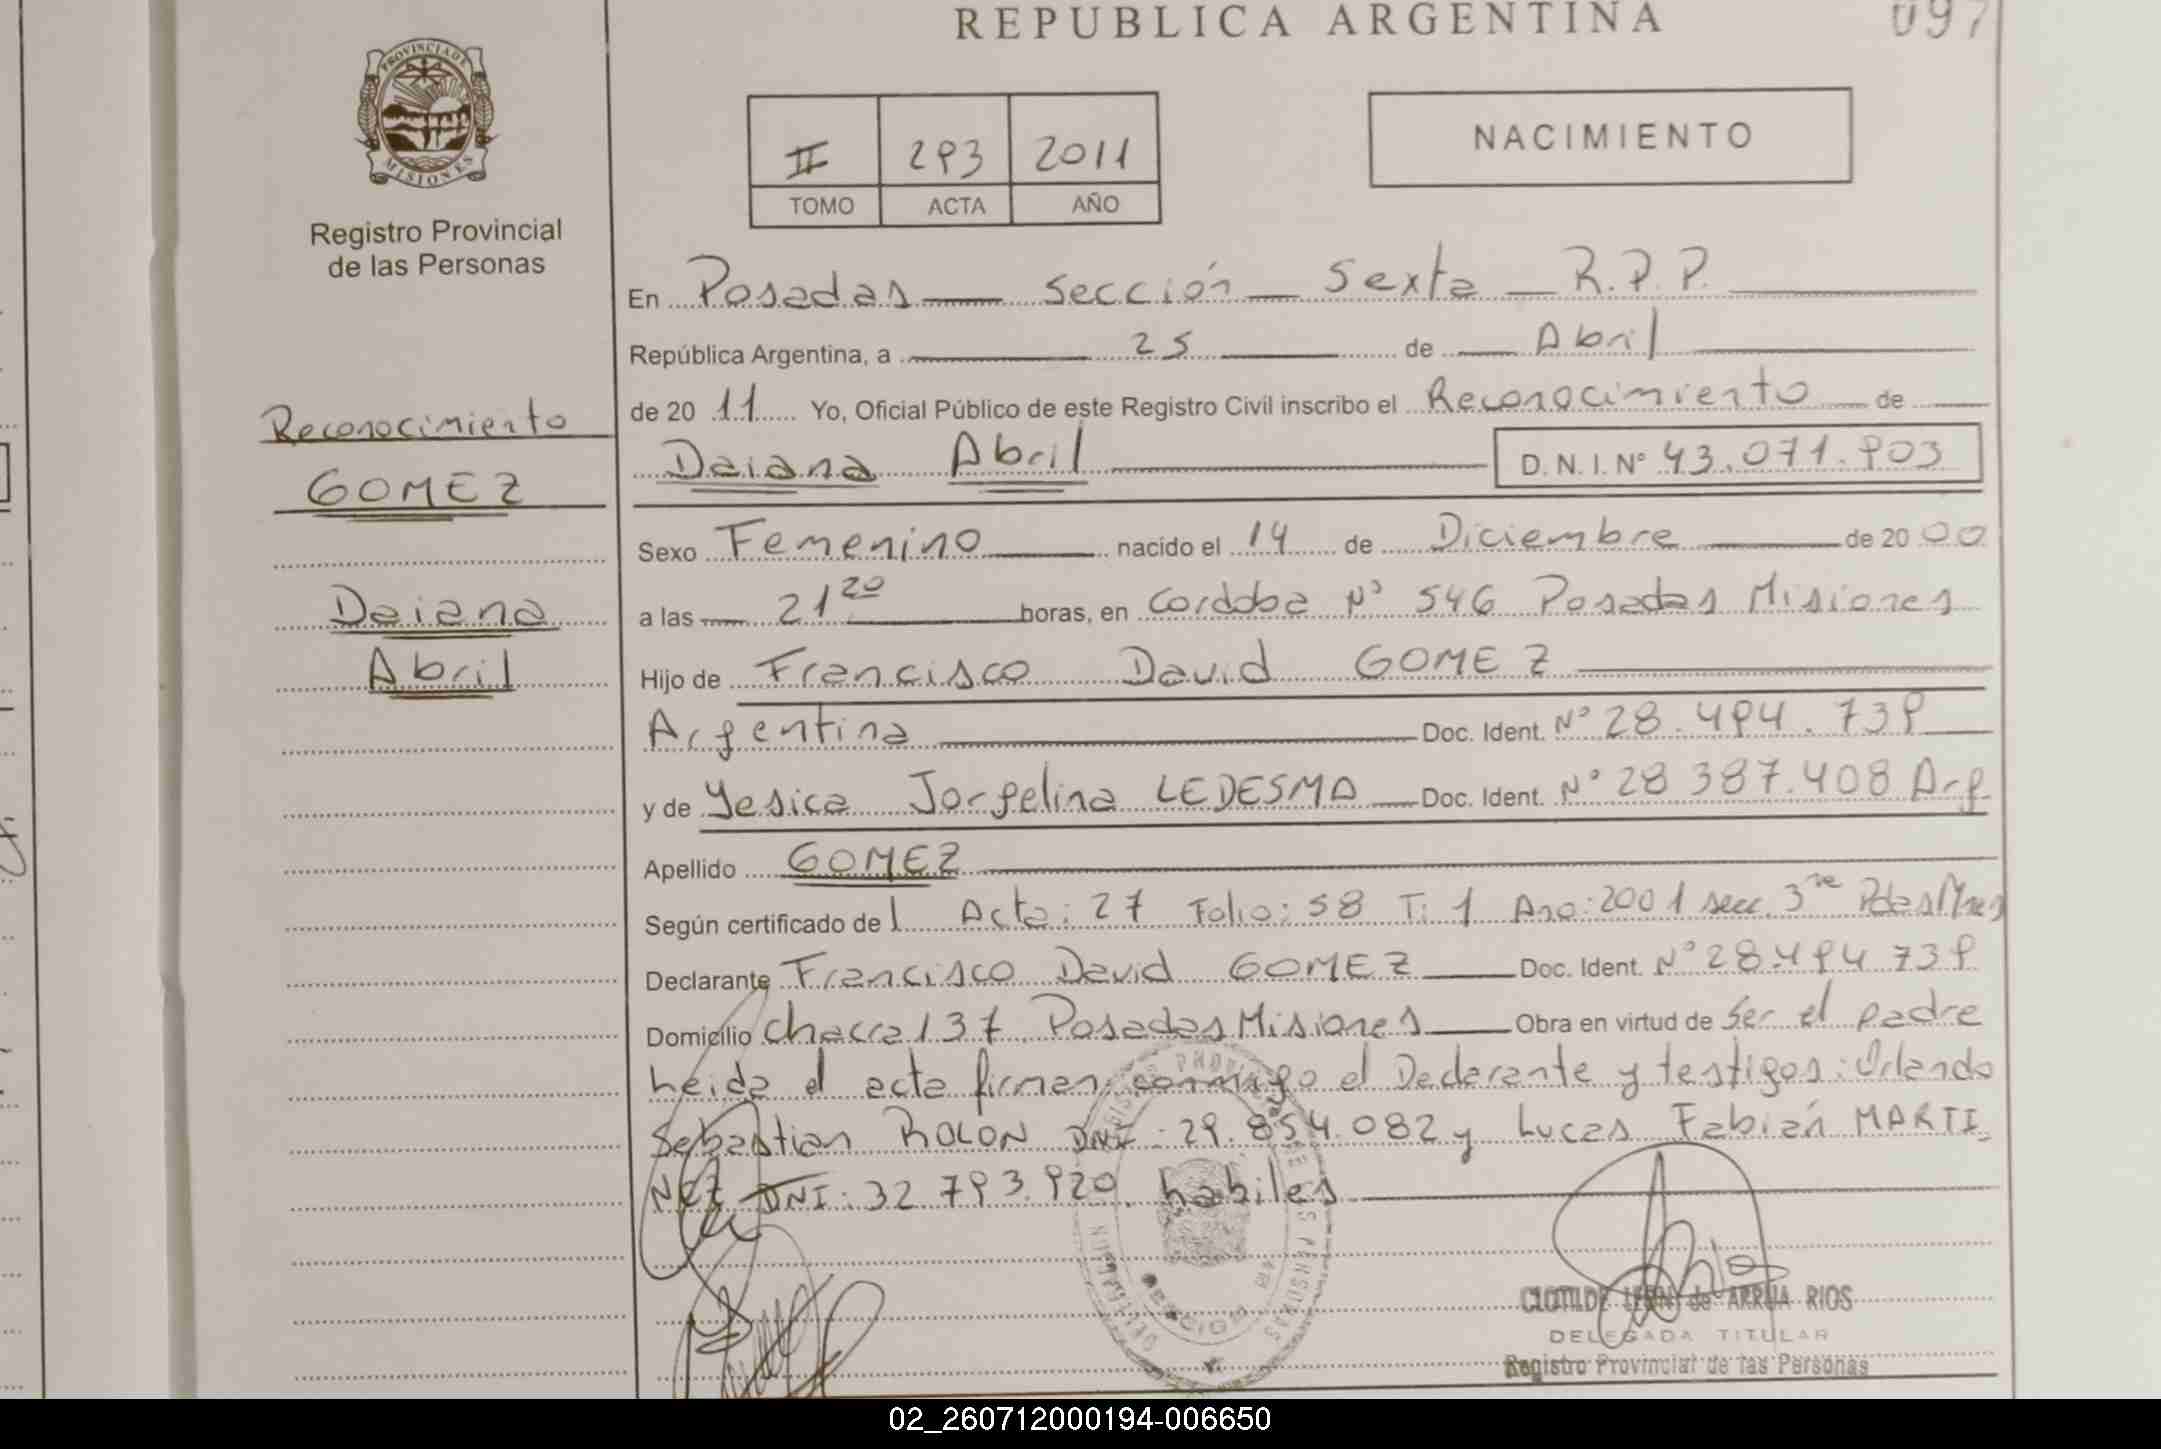 REPUBLICA ARGENTINA
097
PROVINCIA DE
MISIONES
Registro Provincial
de las Personas
II 293 2011
TOMO ACTA AÑO
NACIMIENTO
En Posadas — Sección — Sexta — R.P.P.
República Argentina, a 25 de Abril
de 20 11 Yo, Oficial Público de este Registro Civil inscribo el Reconocimiento de
Daiana Abril D.N.I.Nº 43.071.903
Reconocimiento
GOMEZ
Daiana
Abril
Sexo Femenino nacido el 14 de Diciembre de 20 00
a las 21 20 horas, en Cordoba Nº 546 Posadas Misiones
Hijo de Francisco David GOMEZ
Argentina Doc. Ident. Nº 28.494.739
y de Yesica Jorgelina LEDESMA Doc. Ident. Nº 28 387.408 Arg
Apellido GOMEZ
Según certificado de l Acta: 27 Folio: 58 T: 1 Ano: 2001 secc. 3ra Pdas Mnes
Declarante Francisco David GOMEZ Doc. Ident. Nº 28.494 739
Domicilio Chacra 137 Posadas Misiones Obra en virtud de Ser el padre
Leida el acta firman conmigo el Declarante y testigos: Orlando
Sebastian ROLON DNI: 29.854.082 y Lucas Fabián MARTI
NEZ DNI: 32 793.920. habiles
CLOTILDE LEON de ARRUA RIOS
DELEGADA TITULAR
Registro Provincial de las Personas
02_260712000194-006650